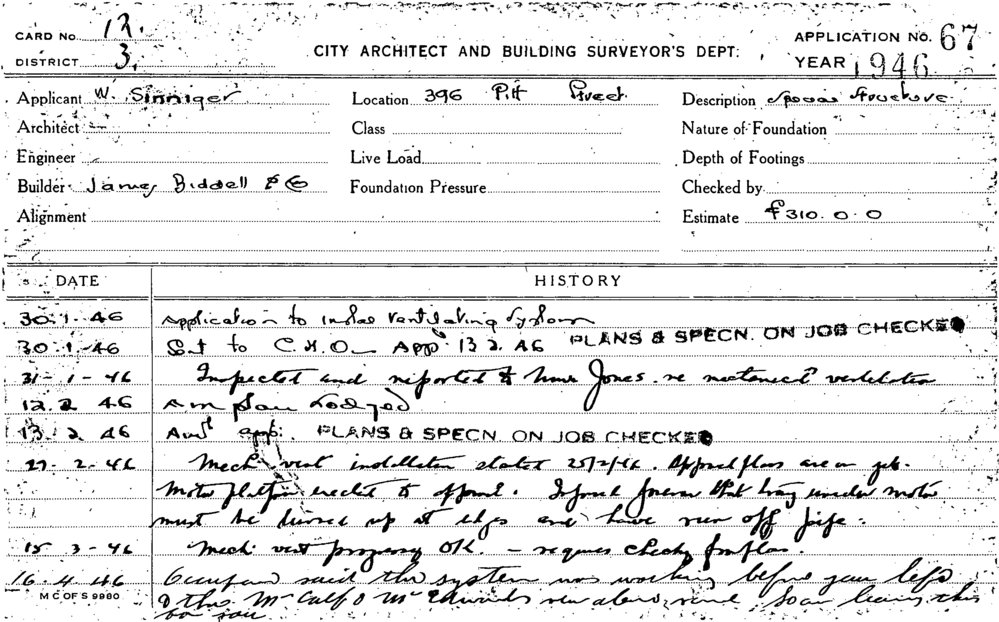 CARD No. 12.
DISTRICT 3.
CITY ARCHITECT AND BUILDING SURVEYOR'S DEPT:
APPLICATION NO. 67
YEAR 1946
Applicant W. Sinniger Location 396 Pitt Street Description Structure
Architect — Class Nature of Foundation
Engineer Live Load Depth of Footings
Builder James Biddell & Co Foundation Pressure Checked by
Alignment Estimate £310.0.0
DATE HISTORY
30.1.46 Application to install Ventilating System
30.1.46 Sent to C.H.O. App'd 13 2. 46 PLANS & SPECN. ON JOB CHECKED
31-1-46 Inspected and reported to Jones. re ventilation
12.2 46 Am plan Lodged
13.2 46 app. PLANS & SPECN. ON JOB CHECKED
27-2-46 Mech vent installation started 25/2/46. plans are on job.
Motor platform erected to approval. that tray under motor
must be turned up at edges and have run off pipe.
15 3-46 Mech. vent OK. - requires
16.4.46 Occupant said the system was working before you left
M C OF S 9980